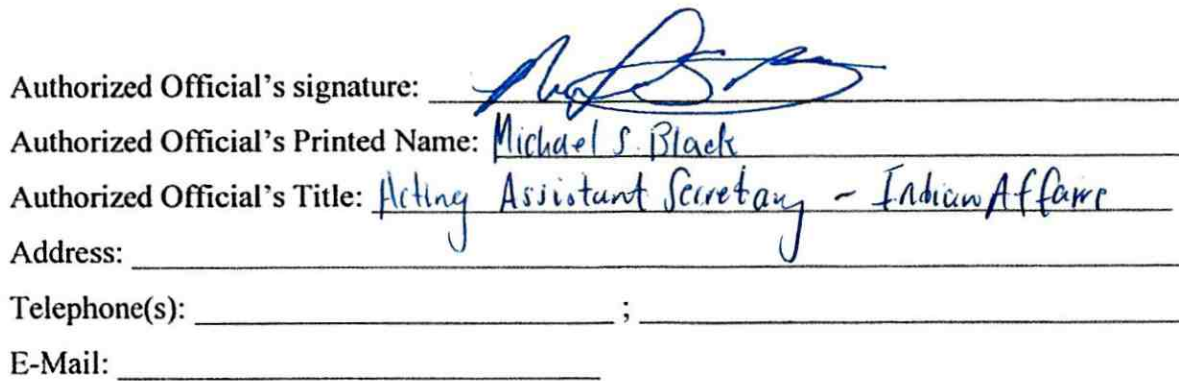 Authorized Official's signature:
Authorized Official's Printed Name: Michael S. Black
Authorized Official's Title: Acting Assistant Secretary - Indian Affairs
Address:
Telephone(s): ;
E-Mail: